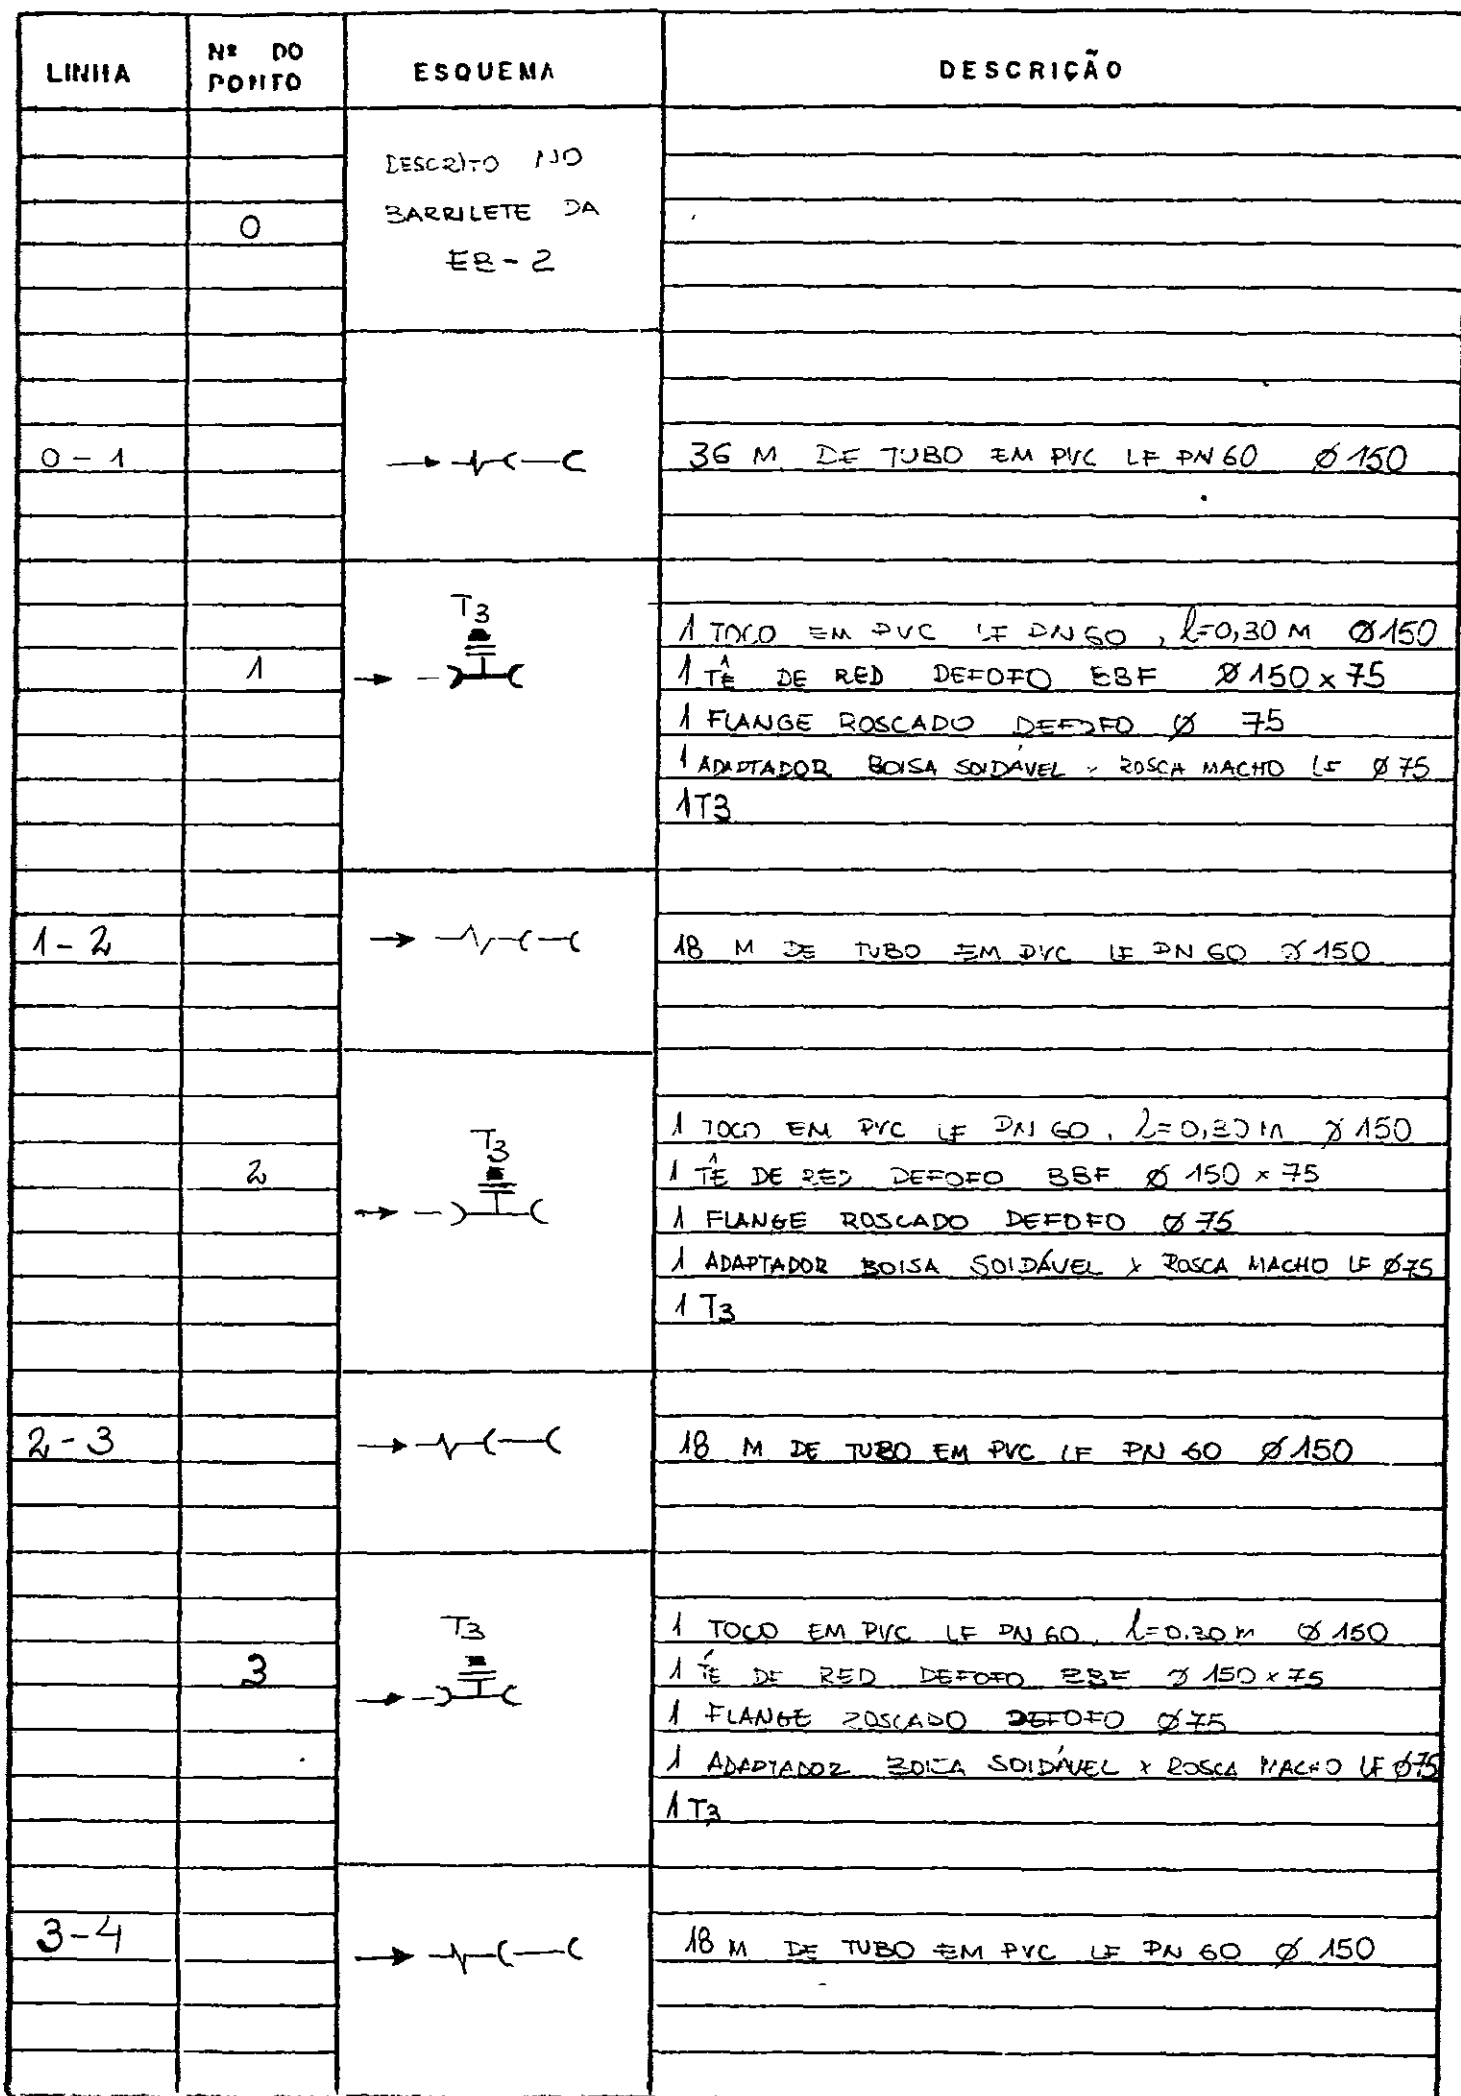 LINHA
Nº DO PONTO
ESQUEMA
DESCRIÇÃO
0
DESCRITO NO
BARRILETE DA
EB-2
0-1
36 M DE TUBO EM PVC LF PN 60 Ø 150
T3
1
1 TOCO EM PVC LF PN 60, l=0,30 M Ø 150
1 TÊ DE RED DEFOFO BBF Ø 150 x 75
1 FLANGE ROSCADO DEFOFO Ø 75
1 ADAPTADOR BOLSA SOLDÁVEL x ROSCA MACHO LF Ø 75
1 T3
1-2
18 M DE TUBO EM PVC LF PN 60 Ø 150
T3
2
1 TOCO EM PVC LF PN 60, l=0,30 M Ø 150
1 TÊ DE RED DEFOFO BBF Ø 150 x 75
1 FLANGE ROSCADO DEFOFO Ø 75
1 ADAPTADOR BOLSA SOLDÁVEL x ROSCA MACHO LF Ø 75
1 T3
2-3
18 M DE TUBO EM PVC LF PN 60 Ø 150
T3
3
1 TOCO EM PVC LF PN 60, l=0.30 m Ø 150
1 TÊ DE RED DEFOFO BBF Ø 150 x 75
1 FLANGE ROSCADO DEFOFO Ø 75
1 ADAPTADOR BOLSA SOLDÁVEL x ROSCA MACHO LF Ø 75
1 T3
3-4
18 M DE TUBO EM PVC LF PN 60 Ø 150